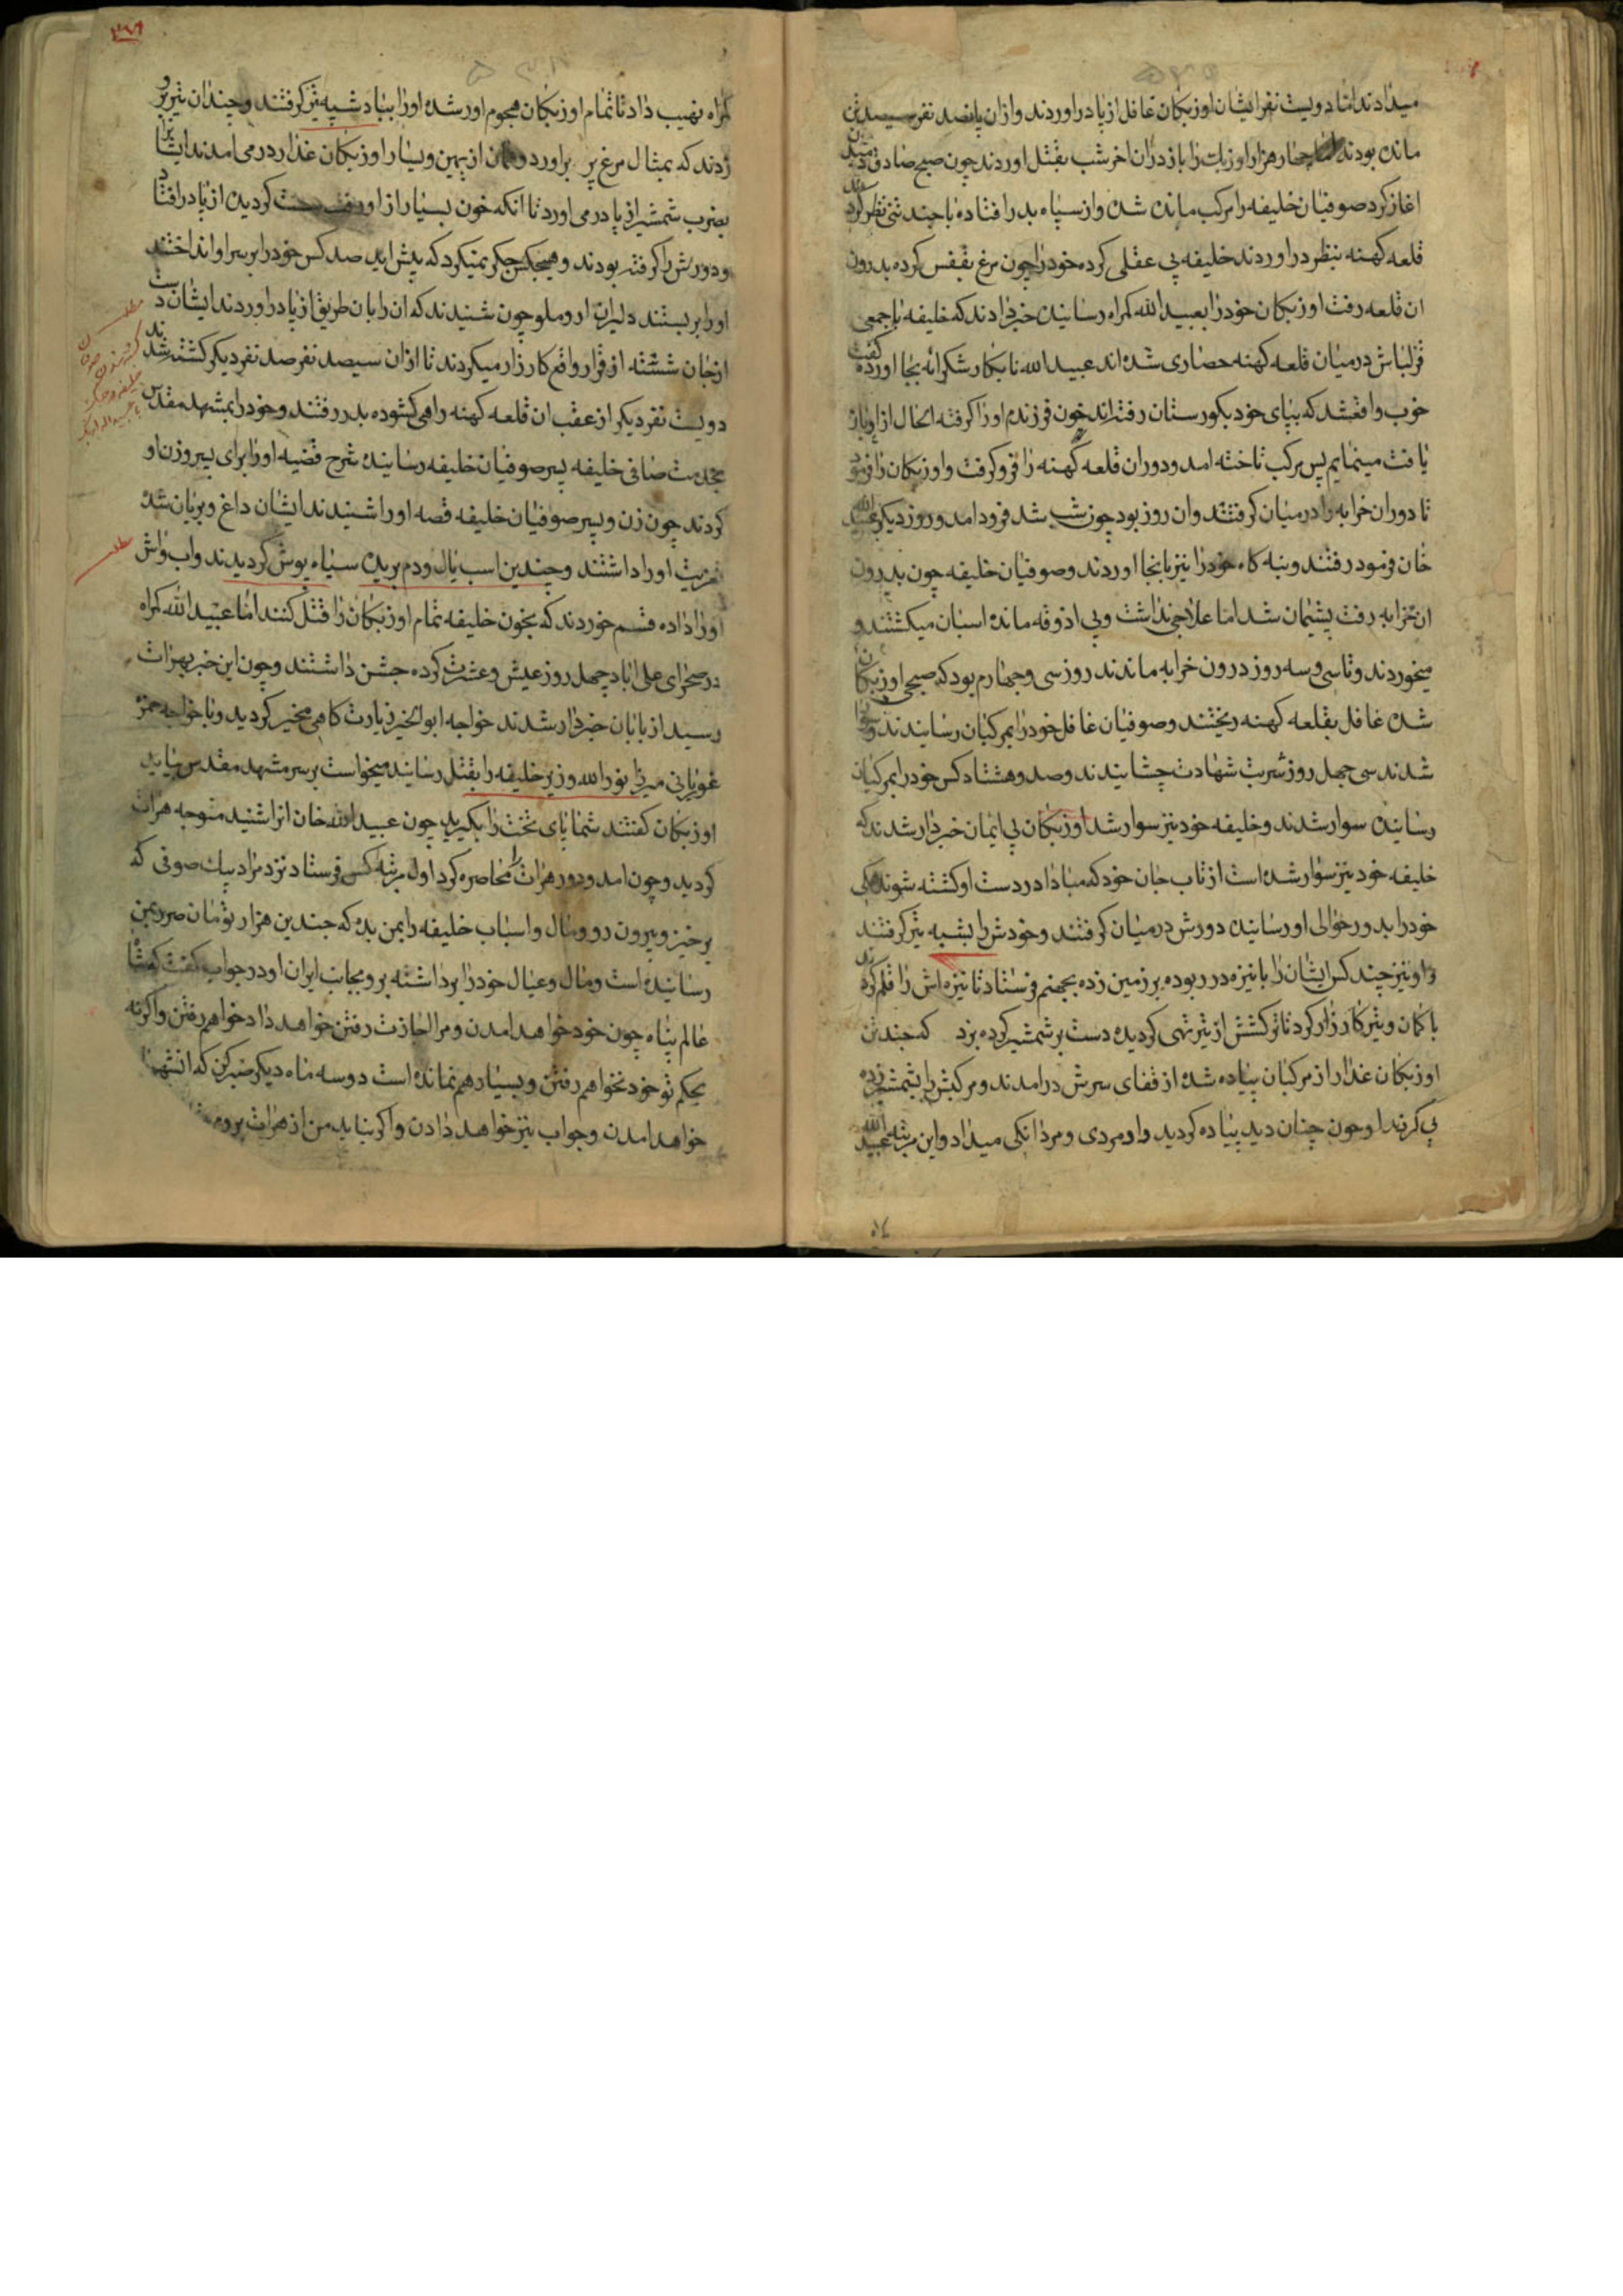 میدادند اما دویست نفر ایشان اوزبکان غافل از پا در اوردند و از ان پانصد نفر سیصد تن
مانده بودند چهار هزار اوزبك را باز در ان اخر شب بقتل اوردند چون صبح صادق دمیدن
اغاز کرد صوفیان خلیفه را مرکب مانده شده و از سپاه بدر افتاده با چند تنی نظر کردند
قلعه کهنه بنظر در اوردند خلیفه بی عقلی کرده خود را چون مرغ بقفس کرده بدرون
ان قلعه رفت اوزبکان خود را بعبید الله کمراه رسانیده خبر دادند که خلیفه با جمعی
قزلباش در میان قلعه کهنه حصاری شده اند عبید الله نابکار شکرانه بجا اورده کفت
خوب واقعشد که بپای خود بکورستان رفته اند خون فرزندم اورا کرفته الحال از او باز
یافت مینمایم پس مرکب تاخته امد و دور ان قلعه کهنه را فرو کرفت و اوزبکان را فرمود
تا دور ان خرابه را در میان کرفتند و ان روز بود چون شب شد فرود امد و روز دیکر عبید الله
خان فرمود رفتند و بنه کاه خود را نیز بانجا اوردند و صوفیان خلیفه چون بدرون
ان خرابه رفت پشیمان شد اما علاجی نداشت و بی اذوقه مانده اسبان میکشتند و
میخوردند و تا سی و سه روز در ون خرابه ماندند روز سی و چهارم بود که صبحی اوزبکان
شده غافل بقلعه کهنه ریختند و صوفیان غافل خود را بمرکبان رسانیدند و سوار
شدند سی چهل روز شربت شهادت چشانیدند و صد و هشتاد کس خود را بمرکبان
رسانیده سوار شدند و خلیفه خود نیز سوار شد اوزبکان بی ایمان خبردار شدند که
خلیفه خود نیز سوار شده است از تاب جان خود که مبادا در دست او کشته شوند همکی
خود را بدور حوالی او رسانیده دورش در میان کرفتند و خودش را بشیبه تیر کرفتند
و او نیز چند کس ایشان را با نیزه در ربوده بر زمین زده بجهنم فرستاد تا نیزه اش را قلم کردند
با کمان و تیر کارزار کرد تا ترکشش از تیر تهی کردیده دست بر شمشیر کرده بزد که چند تن
اوزبکان غدار از مرکبان پیاده شده از قفای سرش در امدند و مرکبش را بشمشیر زده
پی کردند او چون چنان دید پیاده کردید و داد مردی و مردانکی میداد و این مرتبه عبید الله
کمراه نهیب داد تا تمام اوزبکان هجوم اور شده اورا بباد شیبه تیر کرفتند و چندان تیر برو
زدند که بمثال مرغ پر بر اورد و همان از یمین و یسار اوزبکان غدار در می امدند ایشانرا
بضرب شمشیر از پا در می اورد تا انکه خون بسیار از او رفت سست کردیده از پا در افتاد
و دورش را کرفته بودند و هیچکس جکر نمیکرد که پیش اید صد کس خود را بر سر او انداختند
اورا بر بستند دلیران اروملو چون شنیدند که ان را بان طریق از پا در اوردند ایشان دست
از جان شسته از قرار واقع کارزار میکردند تا از ان سیصد نفر صد نفر دیکر کشته شدند
دویست نفر دیکر از عقب ان قلعه کهنه راهی کشوده بدر رفتند و خود را بمشهد مقدس
بخدمت صافی خلیفه پسر صوفیان خلیفه رسانیده شرح قضیه اورا برای پسر و زن او
کردند چون زن و پسر صوفیان خلیفه قصه اورا شنیدند ایشان داغ و بریان شده
تعزیت اورا داشتند و چندین اسب یال و دم بریده سیاه پوش کردیدند و اب و اش
اورا داده قسم خوردند که بخون خلیفه تمام اوزبکان را قتل کنند اما عبید الله کمراه
در صحرای علی اباد چهل روز عیش و عشرت کرده جشن داشتند و چون این خبر بهرات
رسید از بابان خبردار شدند خواجه ابو الخیر زیارت کاهی مخیر کردید و با خواجه حمزه
غوریانی میرزا نور الله وزیر خلیفه را بقتل رسانید میخواست بر سر مشهد مقدس بیاید
اوزبکان کفتند شما پای تخت را بکیرید چون عبید الله خان انرا شنید متوجه هرات
کردید و چون امد و دور هرات را محاصره کرد اول مرتبه کس فرستاد نزد مراد بیك صوفی که
بر خیز و بیرون رو و مال و اسباب خلیفه را بمن بده که چندین هزار تومان ضرر بمن
رسانیده است و مال و عیال خود را برداشته برو بجانب ایران او در جواب کفت که شاه
عالم پناه چون خود خواهد امدن و مرا اجازت رفتن خواهد داد خواهم رفتن و اکر نه
بحکم تو خود نخواهم رفتن و بسیار هم نمانده است دو سه ماه دیکر صبر کن که انشهنشاه
خواهد امدن و جواب نیز خواهد دادن و اکر نیاید من از هرات بروم
مطلب
مطلب